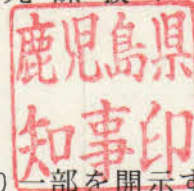 鹿児島県
知事印
一部を開示